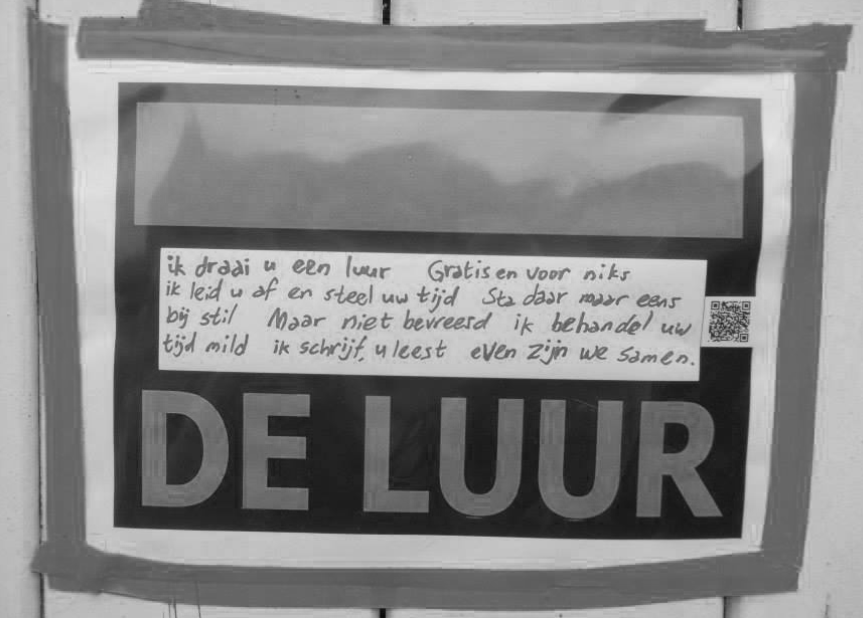 ik draai u een luur Gratis en voor niks
ik leid u af en steel uw tijd Sta daar maar eens
bij stil Maar niet bevreesd ik behandel uw
tijd mild ik schrijf, u leest even zijn we samen.
DE LUUR